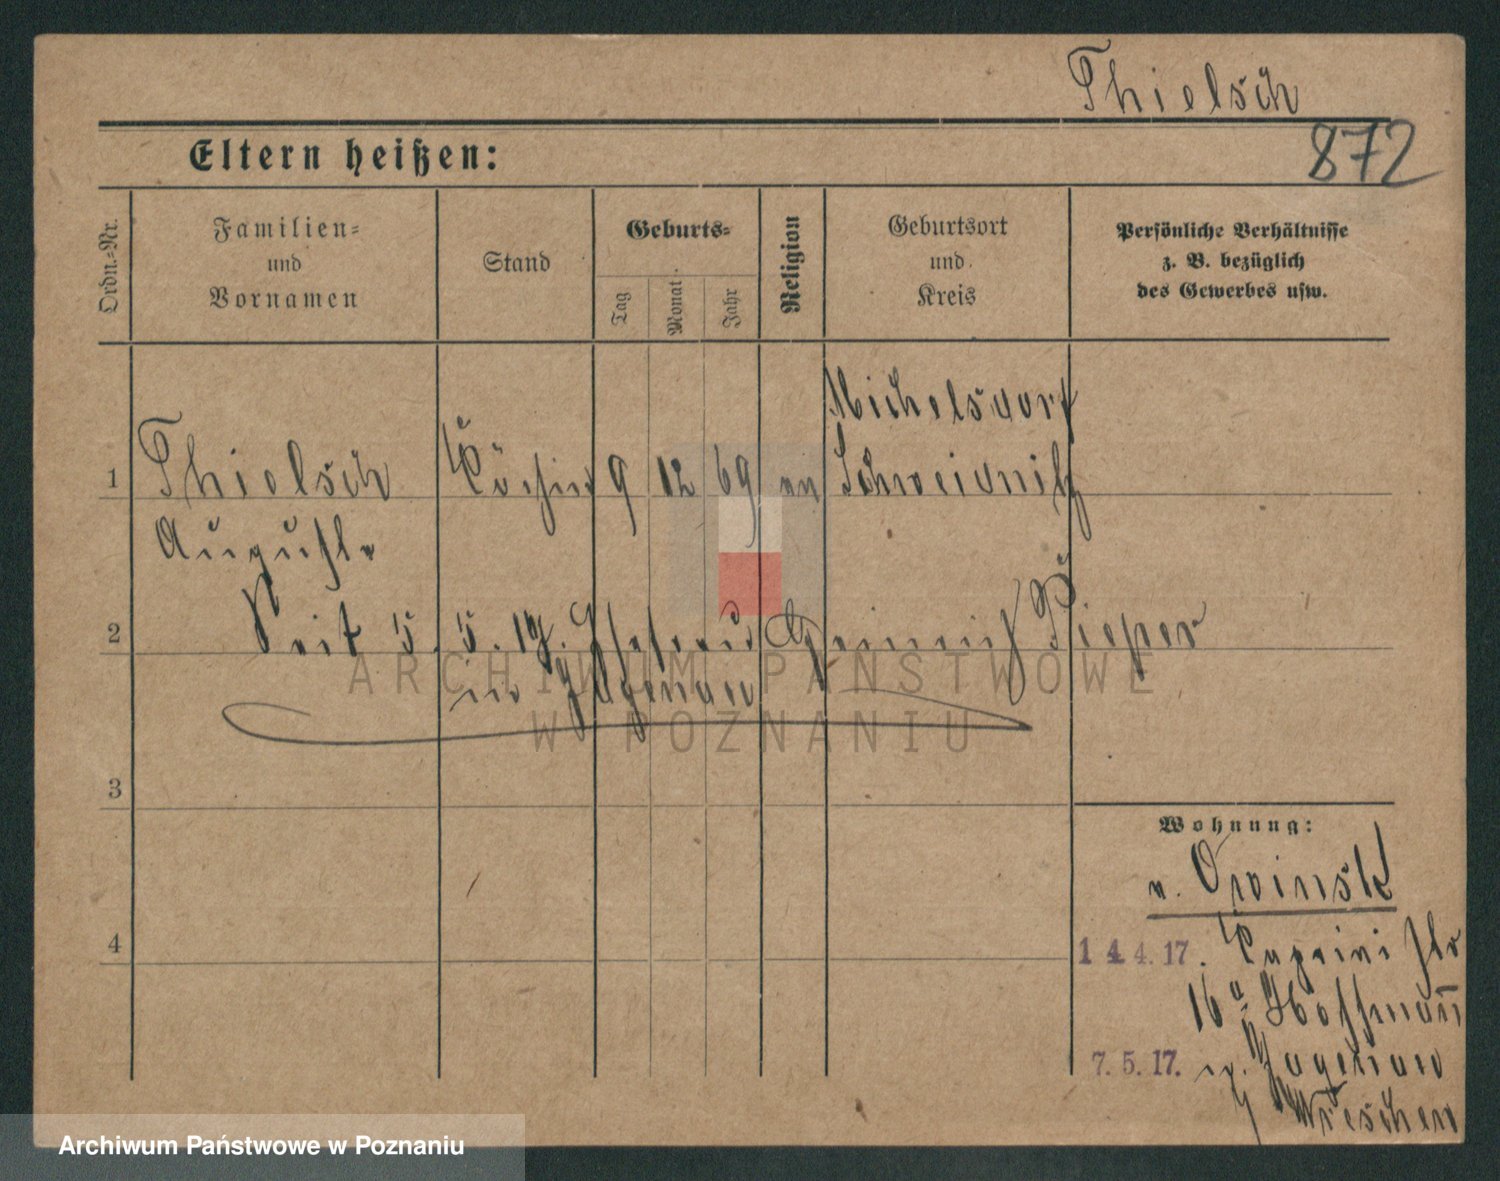 Thielsch
872
Eltern heißen:
Ordn.-Nr.
Familien-
und
Vornamen
Stand
Geburts-
Tag
Monat
Jahr
Religion
Geburtsort
und
Kreis
Persönliche Verhältnisse
z. B. bezüglich
des Gewerbes usw.
Michelsdorf
1 Thielsch Köchin 9 12 69 ev Schweidnitz
Auguste
2 Seit 5. 5. 17. Ehefrau Heinrich Pieper
in Hagenau
ARCHIWUM PAŃSTWOWE
W POZNANIU
3
Wohnung:
v. Owinsk
4
14 4. 17. Kaprini str
16a Hoffmann
7. 5. 17. n. Hagenau
Wreschen
Archiwum Państwowe w Poznaniu